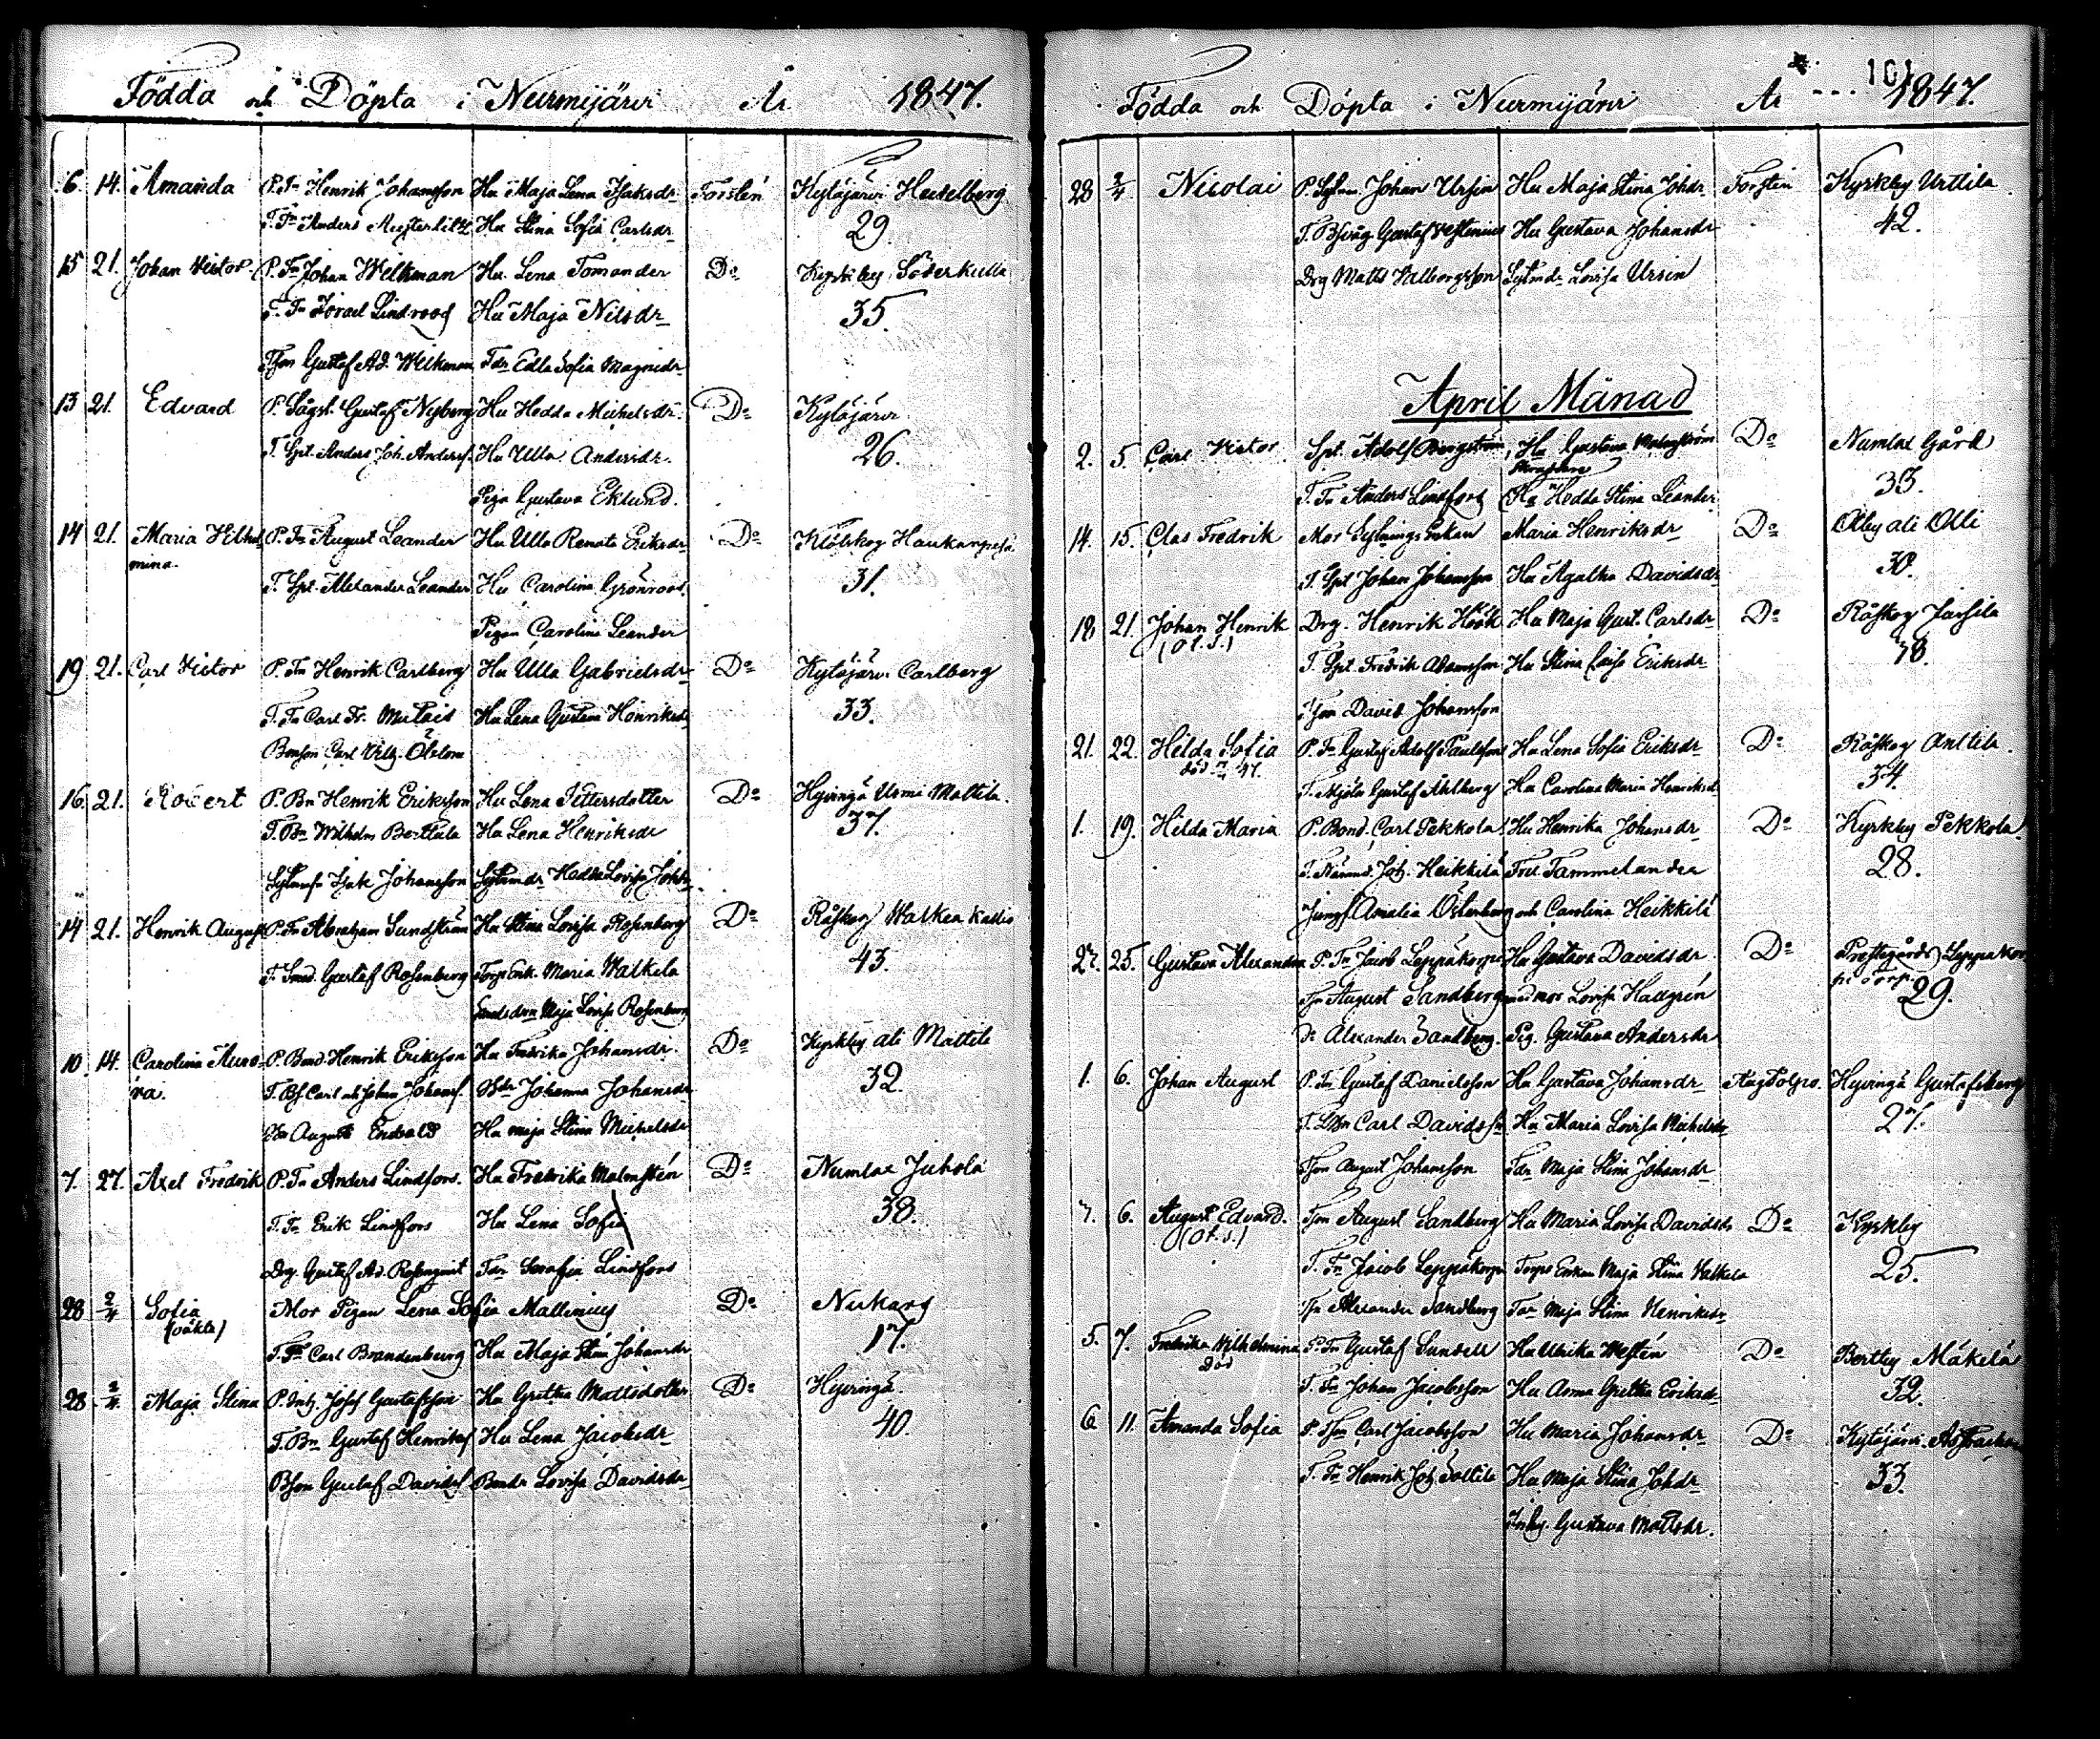 Födda och Döpta i Nurmijärvi År 1847.
6. 14. Amanda P. Tr Henrik Johansson Hu Maja Lena Isaksdr Forstén Kytöjärvi Heidelberg
T. Tr Anders Hu Stina Sofia Carlsdr 29.
15 21. Johan Victor P. Tr Johan Welkman Hu Lena Tomander Do Kyrkby Söderkulla
T. Tr Israel Lindroos Hu Maja Nilsdr 35.
Tson Gustaf Ad. Welkman Tdr Edla Sofia Magnidr
13 21. Edvard P. Sågst. Gustaf Nyberg Hu Hedda Michelsdr Do Kytöjärvi
T. Spt. Anders Joh. Anderss. Hu Ulla Andersdr. 26.
Piga Gustava Eklund.
14 21. Maria Vilhel- P. Tr August Leander Hu Ulla Renata Eriksdr Do Klöfskog Haukanpesä
mina. T. Spt. Alexander Leander Hu Carolina Grönroos 31.
Pigan Carolina Leander
19 21. Carl Victor P. Tr Henrik Carlberg Hu Ulla Gabrielsdr Do Kytöjärvi Carlberg
T. Tr Carl Fr. Hu Lena Gustava Henriksdr 33.
Bonson Carl Vilh.
16. 21. Robert P. Bn Henrik Eriksson Hu Lena Pettersdotter Do Hyvingä Uusi Mattila.
T. Bn Wilhelm Berttula Hu Lena Henriksdr 37.
Isak Johansson Hedda Lovisa
14 21. Henrik August P. Tr Abraham Sundström Hu Stina Lovisa Rosenberg Do Råskog Walkea Kallio
T. Smed. Gustaf Rosenberg Torp Enk. Maria Walkela 43.
Smedsdrn Maja Lovisa Rosenberg
10. 14. Carolina Auro- P. Bond. Henrik Eriksson Hu Fredrika Johansdr. Do Kyrkby ali Mattila
ra. T. Bs. Carl och Johan Johans. Bdr Johanna Johansdr 32.
August Enevald Hu Maja Stina Michelsdr
7. 27. Axel Fredrik P. Tr Anders Lindfors. Hu Fredrika Malmstén Do Numlax Juhola
T. Tr Erik Lindfors Hu Lena Sofia 38.
Drg. Gustaf Ad. Rosenqvist Tdr Serafia Lindfors
28 2/4 Sofia Mor Pigan Lena Sofia Mallenius Do Nukarg
(oäkta) T. Tr Carl Brandenburg Hu Maja Stina Johansdr 17.
28 2/4 Maja Stina P. Inh. Josef Gustafsson Hu Gretha Mattsdotter Do Hyvingä.
T. Bn Gustaf Henriks. Hu Lena Jacobsdr 40.
Bson Gustaf Davids. Bondr Lovisa Davidsdr
101
Födda och Döpta i Nurmijärvi År 1847.
28 2/4 Nicolai P. Sytnm. Johan Ursin Hu Maja Stina Johdr Forstén Kyrkby Urttila
T. Gustaf Westenius Hu Gustava Johansdr 42.
Drg Matts Valborgsson Sytmdr Lovisa Ursin
April Månad
2. 5. Carl Victor Spt. Adolf Hu Gustava Malmström Do Numlax Gård
T. Tr Anders Lindfors Hu Hedda Stina Leander 33.
14. 15. Clas Fredrik Mor Sytnings Enkan Maria Henriksdr Do Ali Olli
T. Spt Johan Johansson Hu Agatha Davidsdr 30.
18 21. Johan Henrik Drg. Henrik Höök Hu Maja Gust. Carlsdr Do Råskog Jussila
T. Spt. Fredrik Adamsson Hu Stina Caisa Eriksdr 38.
Tson David Johansson
21. 22. Hilda Sofia P. Tr Gustaf Adolf Paulsson Hu Lena Sofia Eriksdr Do Råskog Anttila.
T. Mjöln. Gustaf Ahlberg Hu Carolina Maria Henriksd. 34.
1. 19. Hilda Maria P. Bond. Carl Pekkola Hu Henrika Johansdr Do Kyrkby Pekkola
T. Nämnd. Joh. Heikkilä Fru Tammelander 28.
Jungf. Amalia Österberg och Carolina Heikkilä
22. 25. Gustava Alexandra P. Tr Jacob Leppäkorpi Hu Gustava Davidsdr Do Prestegårds Leppäkor-
Tsn August Sandberg med mor Lovisa Hallgrén pi Torp. 29.
Do Alexander Sandberg. Pig. Gustava Andersdr
1. 6. Johan August P. Tr Gustaf Danielsson Hu Gustava Johansdr Hyvingä Gustafsberg
T. Carl Davidss. Hu Maria Lovisa Michelsdr 27.
Tson August Johansson Tdr Maja Stina Johansdr
7. 6. August Edvard. Tson August Sandberg Hu Maria Lovisa Davidsdr Do Kyrkby
T. Tr Jacob Leppäkorpi Torps Enkan Maja Stina Walkela 25.
Tsn Alexander Sandberg Tdr Maja Stina Henriksdr
5. 7. Fredrika Wilhelmina P. Tr Gustaf Sundell Hu Ulrika Westén Do Bertby Mäkelä
Död T. Tr Johan Jacobsson Hu Anna Gretha Eriksd. 32.
6 11. Amanda Sofia P. Tson Carl Jacobsson Hu Maria Johansdr. Do Kytöjärvi
T. Tr Henrik Joh. Soltila Hu Maja Stina Johdr 33.
Gustava Mattsdr.